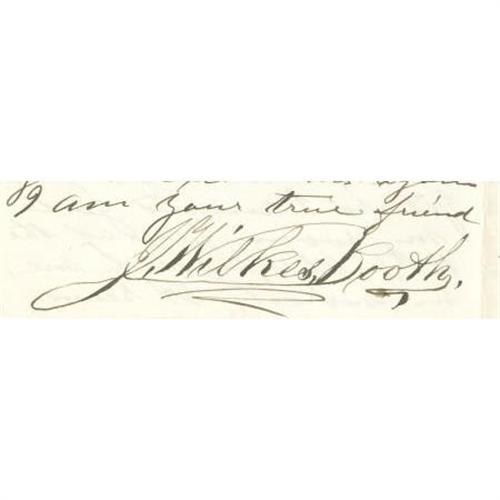 I am your true friend
J. Wilkes Booth.